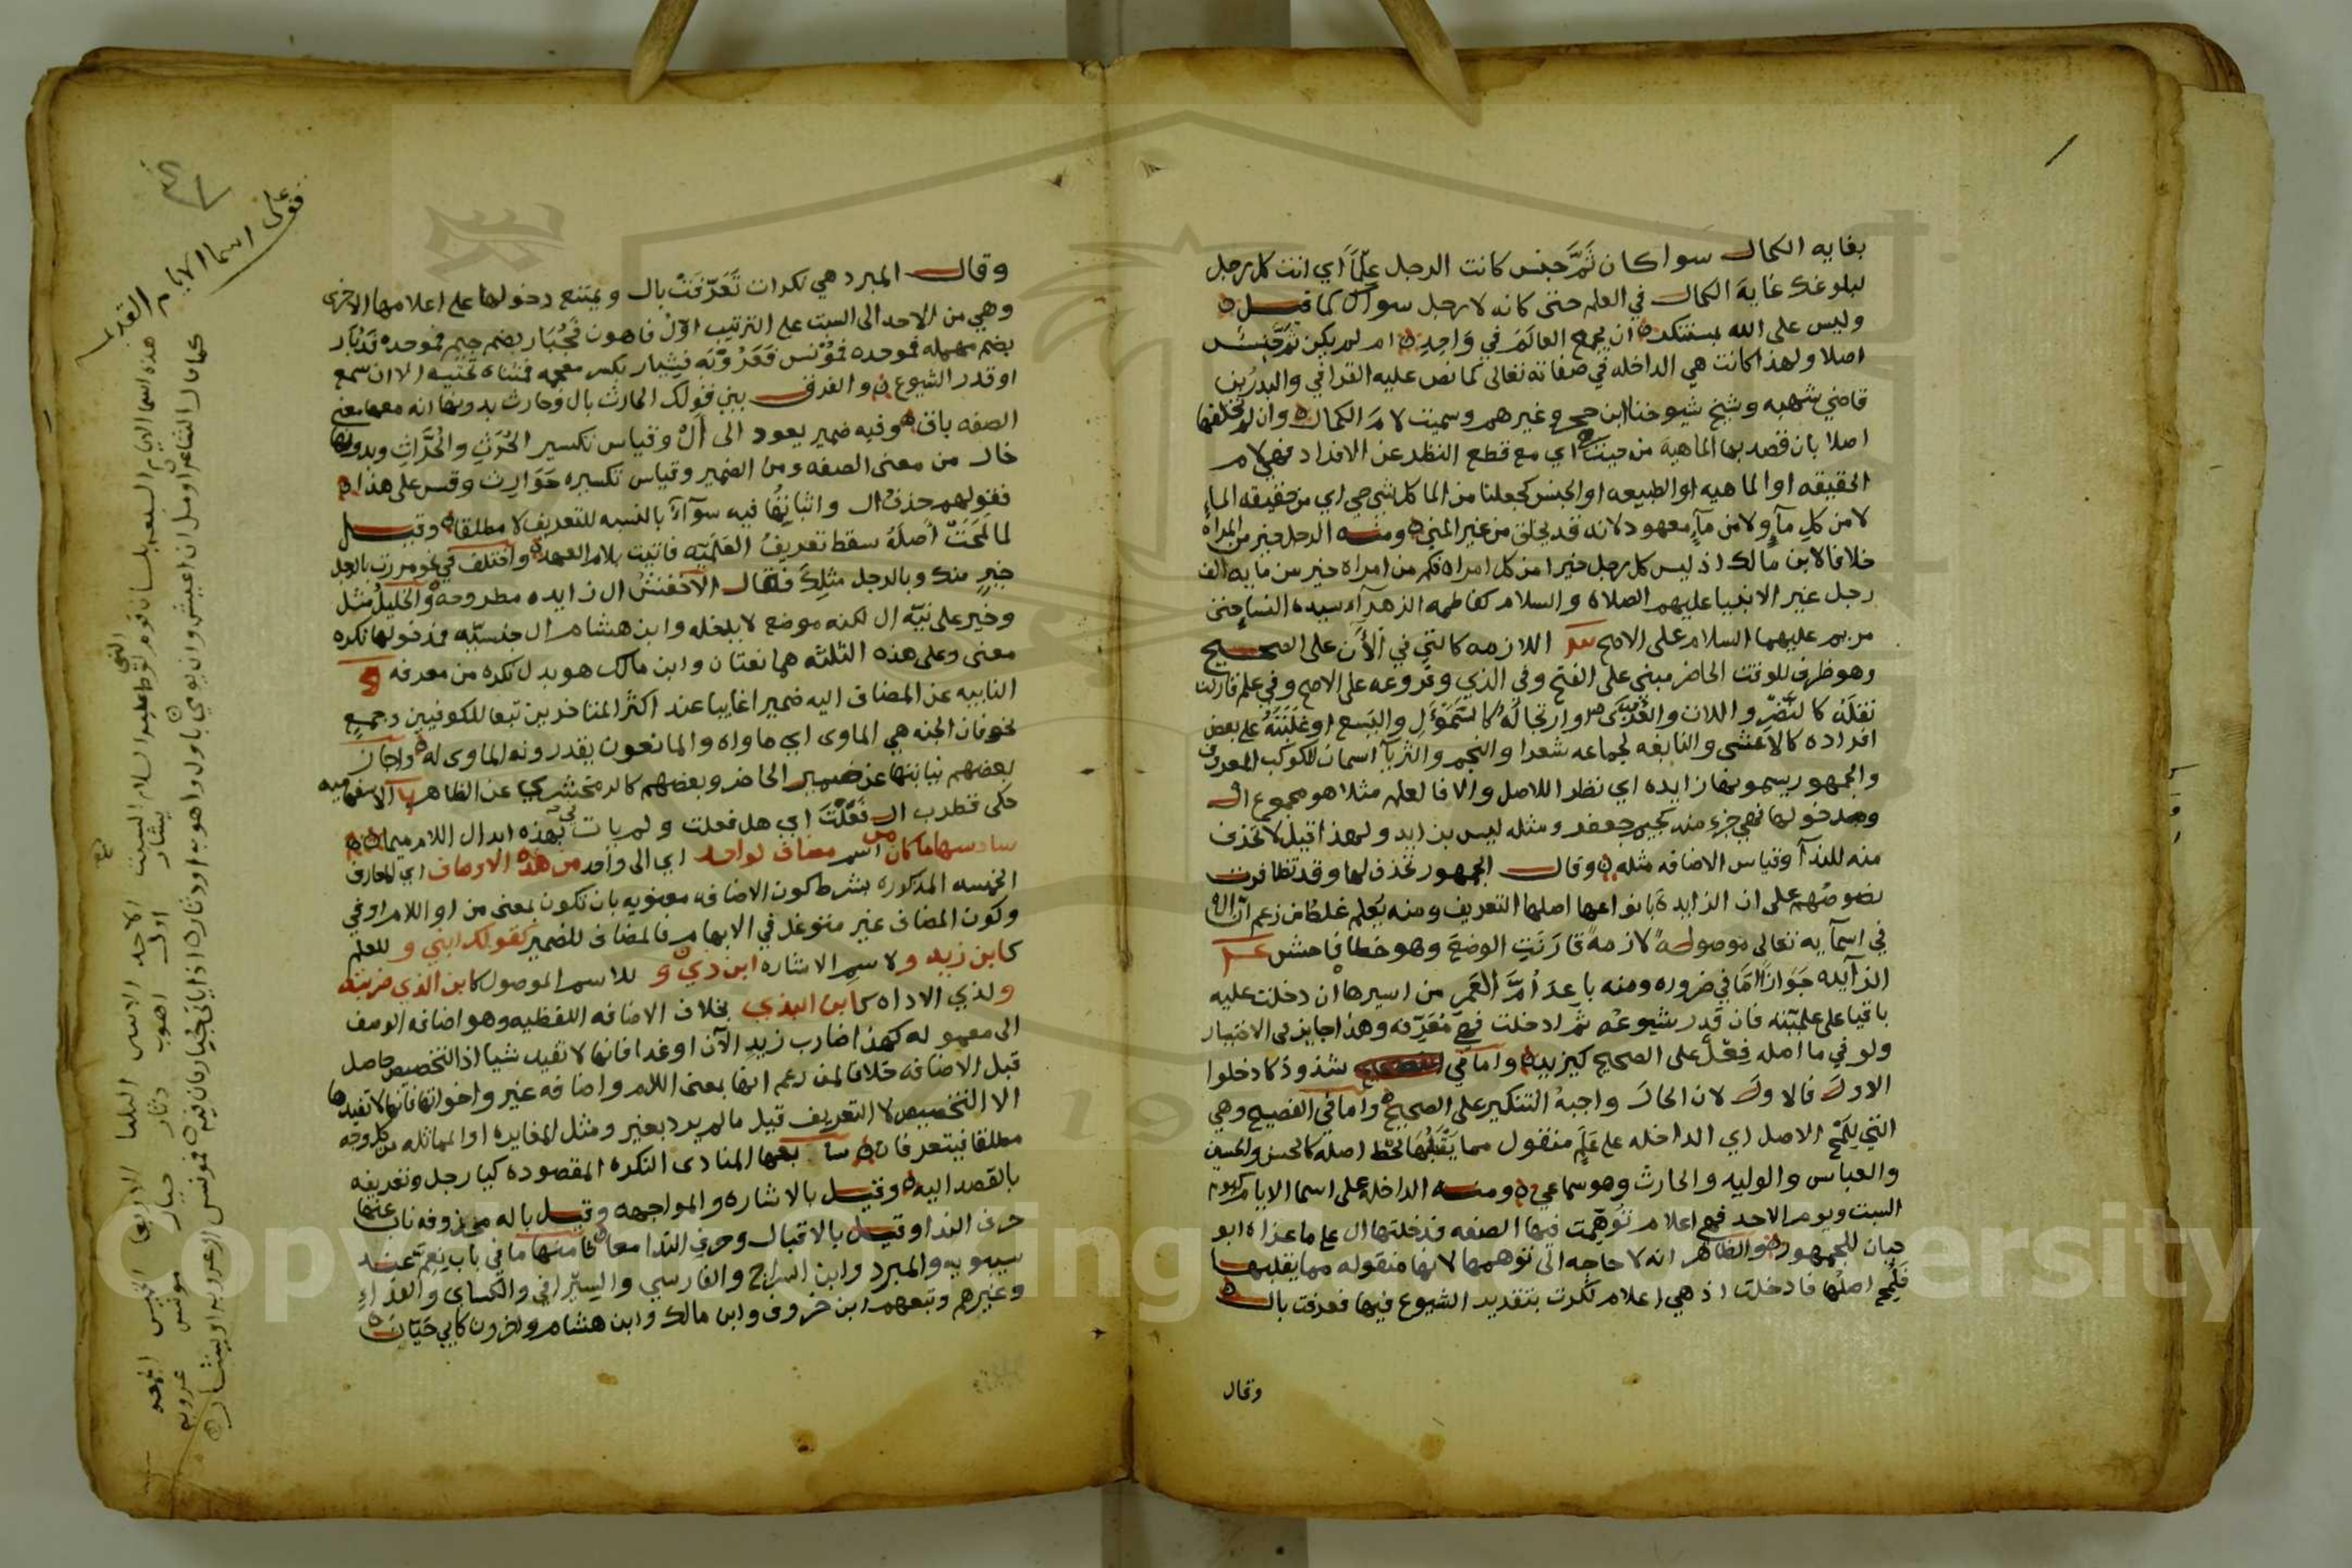 بغايه الكمال سوا كان ثَمَّ جنس كانت الرجل عِلمًا اي انت كل رجل
لبلوغك غاية الكمال في العلم حتى كانه لا رجل سواك كما قيل
وليس على الله بمستنكر ان يجمع العالَمَ في وَاحِدِ ام لم يكن ثَمَّ جنس
اصلا ولهذا كانت هي الداخله في صفاته تعالى كما نص عليه القرافي والبدر بن
قاضي شهبه وشيخ شيوخنا ابن حجر وغيرهم وسميت لامَ الكمال وان لم تخلفها
اصلا بان قصد بها الماهية من حيث هي اي مع قطع النظر عن الافراد فهي لام
الحقيقه او الماهيه او الطبيعه او الجنس كجعلنا من الما كل شي حي اي من حقيقه الماءِ
لا من كل مآءٍ ولا من مآءٍ معهود لانه قد يخلق من غير المني ومنه الرجل خير من المراة
خلافا لابن مالك اذ ليس كل رجل خيرا من كل امراه فكم من امراه خير من مايه الف
رجل غير الانبيا عليهم الصلاة والسلام كفاطمه الزهرآء سيدة النسا حتى
مريم عليهما السلام على الاصح اللازمه كالتي في الأن على الصحيح
وهو ظرف للوقت الحاضر مبني على الفتح وفي الذي وفروعه على الاصح وفي علم قارنت
نقلَه كالنَّضْرِ واللات والعُزّى او ارتجالَه كالسَّمَوْءَلِ واليسع او غلبَتَهُ على بعض
افراده كالاعشى والنابغه لجماعه شعرا والنجم والثريآ اسمان للكوكب المعروف
والجمهور يسمونها زايده اي نظرا للاصل والا فالعلم مثلا هو مجموع ال
ومدخولها فهي جزء منه كجيم جعفر ومثله ليس بزايد ولهذا قيل لا تحذف
منه للندآ وقياس الاضافه مثله وقال الجمهور تحذف لها وقد تظافرت
نصوصُهم على ان الزايدة بانواعها اصلها التعريف ومنه يُعلم غلطُ من زعم ان ال
في اسمآيه تعالى موصولةً لازمةً قارَنَتِ الوضعَ وهو خطا فاحش
الزآيده جَوَازاً امَّا في ضروره ومنه باعدَ أمَّ العَمرِ من اسيرها ان دخلت عليه
باقيا على علميّته فان قدر شيوعُه ثمَّ ادخلت فهي مُعَرّفه وهذا جايز في الاختيار
ولو في ما اصله فِعْلٌ على الصحيح كيزيد واما في شذوذ كادخلوا
الاولَ فالاولَ لان الحالَ واجبةُ التنكير على الصحيح واما في الفصيح وهي
التي لِلَمْحِ الاصل اي الداخله على عَلَمٍ منقول مما يَقْبَلُها لمحظ اصله كالحسن والحسين
والعباس والوليد والحارث وهو سماعي ومنه الداخله على اسما الايام كيوم
السبت ويوم الاحد فهي اعلام تُوُهِّمت فيها الصفه فدخلتها ال على ما عزاه ابو
حيان للجمهور والظاهر انه لا حاجه الى توهمها لانها منقوله مما يقبلها
فلُمِح اصلُها فادخلت اذ هي اعلام نُكّرت بتقدير الشيوع فيها فعرفت بال
وقال
وقال المبرد هي نكرات تَعَرَّفَتْ بال ويمتنع دخولها على اعلامها الاخرى
وهي من الاحد الى الست على الترتيب اوّلُ فاهون فجُبَار بضم جيم فموحده فدُبَار
بضم مهمله فموحده فمُؤنس فعَرُوْبَه فشِيار بكسر معجمه فمثناه تحتيه الا ان سمع
او قدر الشيوع والفرق بين قولك الحارث بال وحارث بدونها انه معها معنى
الصفه باق وفيه ضمير يعود الى أَلْ وقياس تكسير الحُرَّثِ والحُرَّاثِ وبدونها
خال من معنى الصفه ومن الضمير وقياس تكسيره حَوَارِث وقس على هذا
فقولهم حذف ال واثباتُها فيه سوآءٌ بالنسبه للتعريف لا مطلقا وقيل
لما لمَحَتْ أَصلَهُ سقط تعريفُ العَلَميّه فاتيت بلام العهد واختلف في نحو مررت بالرجل
خيرٍ منك وبالرجل مثلِكَ فقال الاخفشُ ال زايده مطروحه والخليلُ مثل
وخير على نيّه ال لكنه موضع لا يدخله وابن هشام ال جنسيّه فمدخولها نكره
معنى وعلى هذه الثلثه هما نعتان وابن مالك هو بدل نكره من معرفه و
النايبه عن المضاف اليه ضمير اغايبا عند اكثر المتاخرين تبعا للكوفيين وجمعٍ
نحو فان الجنه هي الماوى اي ماواه والمانعون يقدرونه الماوى له واجاز
بعضهم نيابتها عن ضمير الحاضر وبعضهم كالزمخشري عن الظاهر الاستفهاميه
حكى قطرب ال فَعَلْتَ اي هل فعلت ولم يات في هذه ابدال اللام ميما
سادسها ما كان من اسم مضاف لواحد اي الى واحد من هذه الاوصاف اي المعارف
الخمسه المذكوره بشرط كون الاضافه معنويه بان تكون بمعنى من او اللام او في
وكون المضاف غير متوغل في الابهام فالمضاف للضمير كقولك ابني و للعلم
كابن زيد و لاسم الاشاره ابن ذي و للاسم الموصول كابن الذي ضربته
و لذي الاداه كابن البذي بخلاف الاضافه اللفظيه وهو اضافه الوصف
الى معموله كهذا ضارب زيدٍ الآن او غدا فانها لا تفيد شيا اذ التخصيص حاصل
قبل الاضافه خلافا لمن زعم انها بمعنى اللام واضافه غير واخواتها فانها لا تفيدها
الا التخصيص لا التعريف قيل ما لم يرد بغير ومثل المغايره او المماثله من كل وجه
مطلقا فيتعرفان سابعها المنادى النكره المقصوده كيا رجل وتعريفه
بالقصد اليه وقيل بالاشاره والمواجهه وقيل باله محذوفه ناب عنها
حرف الندا وقيل بالاقبال وحرف الندا معا ثامنها ما في باب نِعِمَّ عند
سيبويه والمبرد وابن السراج والفارسي والسيرافي والكساي والفرّاءِ
وغيرهم وتبعهم ابن خروف وابن مالك وابن هشام واخرون كابي حَيّان
قف على اسما الايام
القديمه
هذه اسما الايام السبعه بلسان قوم لوط عليه السلام السبت الاحد الاثنين الثلثا الاربعا الخميس الجمعه
شيار اول اهون جبار دبار مونس عروبه
Copyright © King Saud University
19